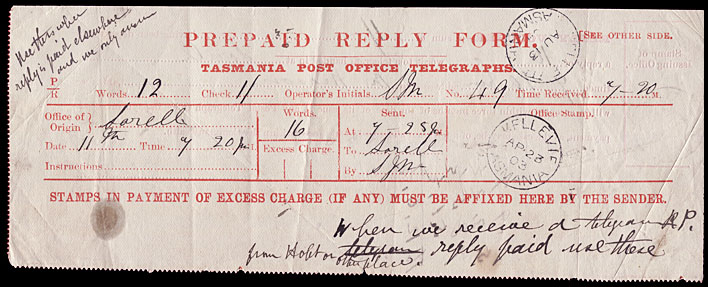 Use this when
reply is paid elsewhere
and we only
PREPAID REPLY FORM.
[SEE OTHER SIDE.
TASMANIA POST OFFICE TELEGRAPHS.
P/R Words 12 Check 11 Operator's Initials SM No. 49 Time Received 7-20 M.
Office of Origin } Sorell
Words.
16
Sent.
Office Stamp.
At 7-28 p
Date 11 th Time 7 20 pm
Excess Charge.
To Sorell
Instructions
By SJM
BELLEVIE
AP 23
03
TASMANIA
TASMANIA
AU 13
STAMPS IN PAYMENT OF EXCESS CHARGE (IF ANY) MUST BE AFFIXED HERE BY THE SENDER.
When we receive a telegram R.P.
from Hobt or telegram reply paid use these
other place.